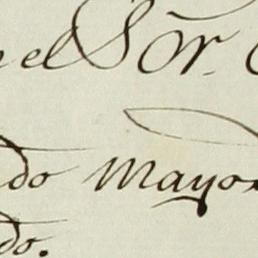 el Sor.
do mayor
do.